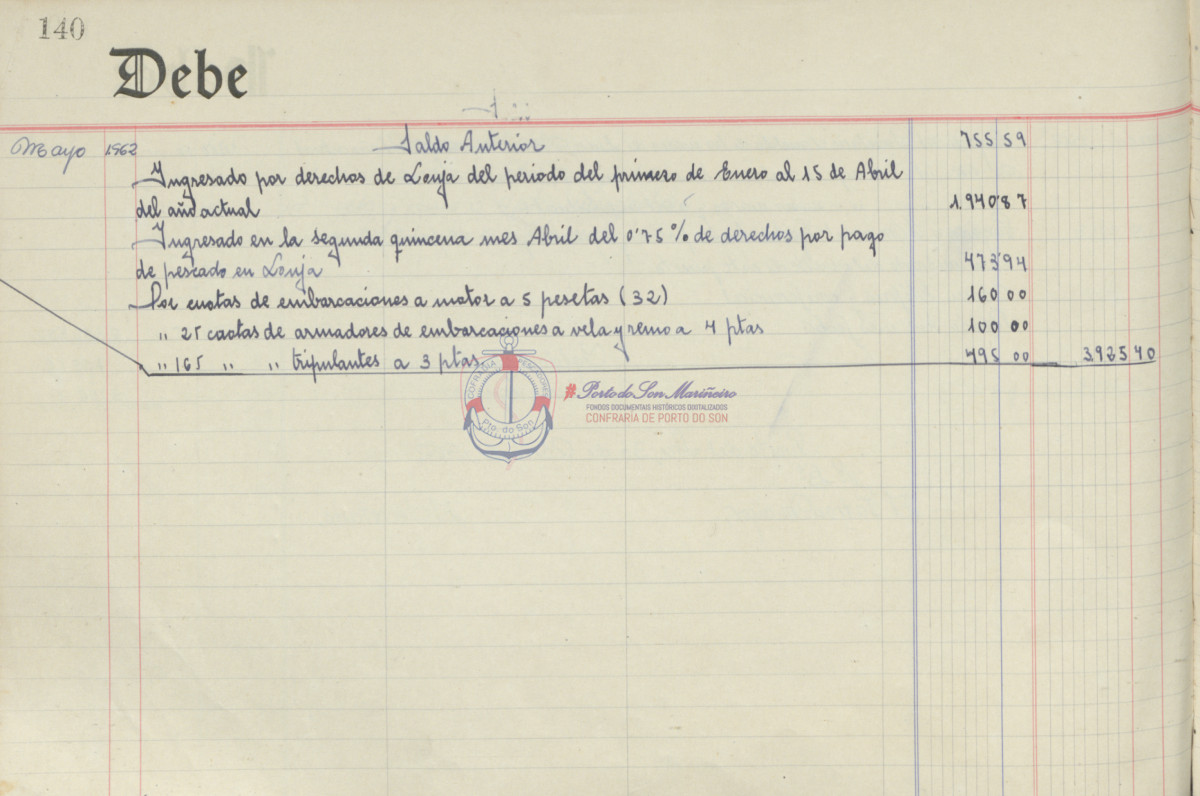 140
Debe
Mayo 1962 Saldo Anterior 755 59
Ingresado por derechos de Lonja del periodo del primero de Enero al 15 de Abril
del año actual 1.940'87
Ingresado en la segunda quincena mes Abril del 0'75 % de derechos por pago
de pescado en Lonja 473'94
Por cuotas de embarcaciones a motor a 5 pesetas (32) 160 00
„ 25 cuotas de armadores de embarcaciones a vela y remo a 4 ptas 100 00
„ 165 „ „ tripulantes a 3 ptas 495 00 3.925 40
Pto. do Son
#Porto do Son Mariñeiro
FONDOS DOCUMENTAIS HISTÓRICOS DIXITALIZADOS
CONFRARÍA DE PORTO DO SON